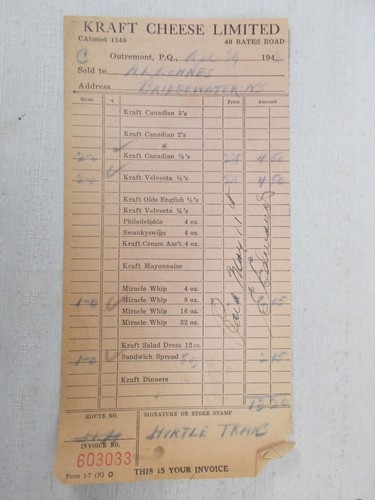 KRAFT CHEESE LIMITED
CAlumet 1148 49 BATES ROAD
C Outremont, P.Q., 194
Sold to
Address BRIDGEWATER NS
Quan. ✓ Price Amount
Kraft Canadian 5's
Kraft Canadian 2's
20 Kraft Canadian ½'s 4 50
20 Kraft Velveeta ½'s 4 50
Kraft Olde English ½'s
Kraft Velveeta ¼'s
Philadelphia 4 oz.
Swankyswigs 4 oz.
Kraft Cream Ass't. 4 oz.
Kraft Mayonnaise
Miracle Whip 4 oz.
10 Miracle Whip 8 oz.
Miracle Whip 16 oz.
Miracle Whip 32 oz.
Kraft Salad Dress. 12 oz.
10 Sandwich Spread 2 15
Kraft Dinners
Paid May 11
ROUTE NO. SIGNATURE OR STORE STAMP
HIRTLE TRANS
INVOICE NO.
603033
Form 1-7 THIS IS YOUR INVOICE